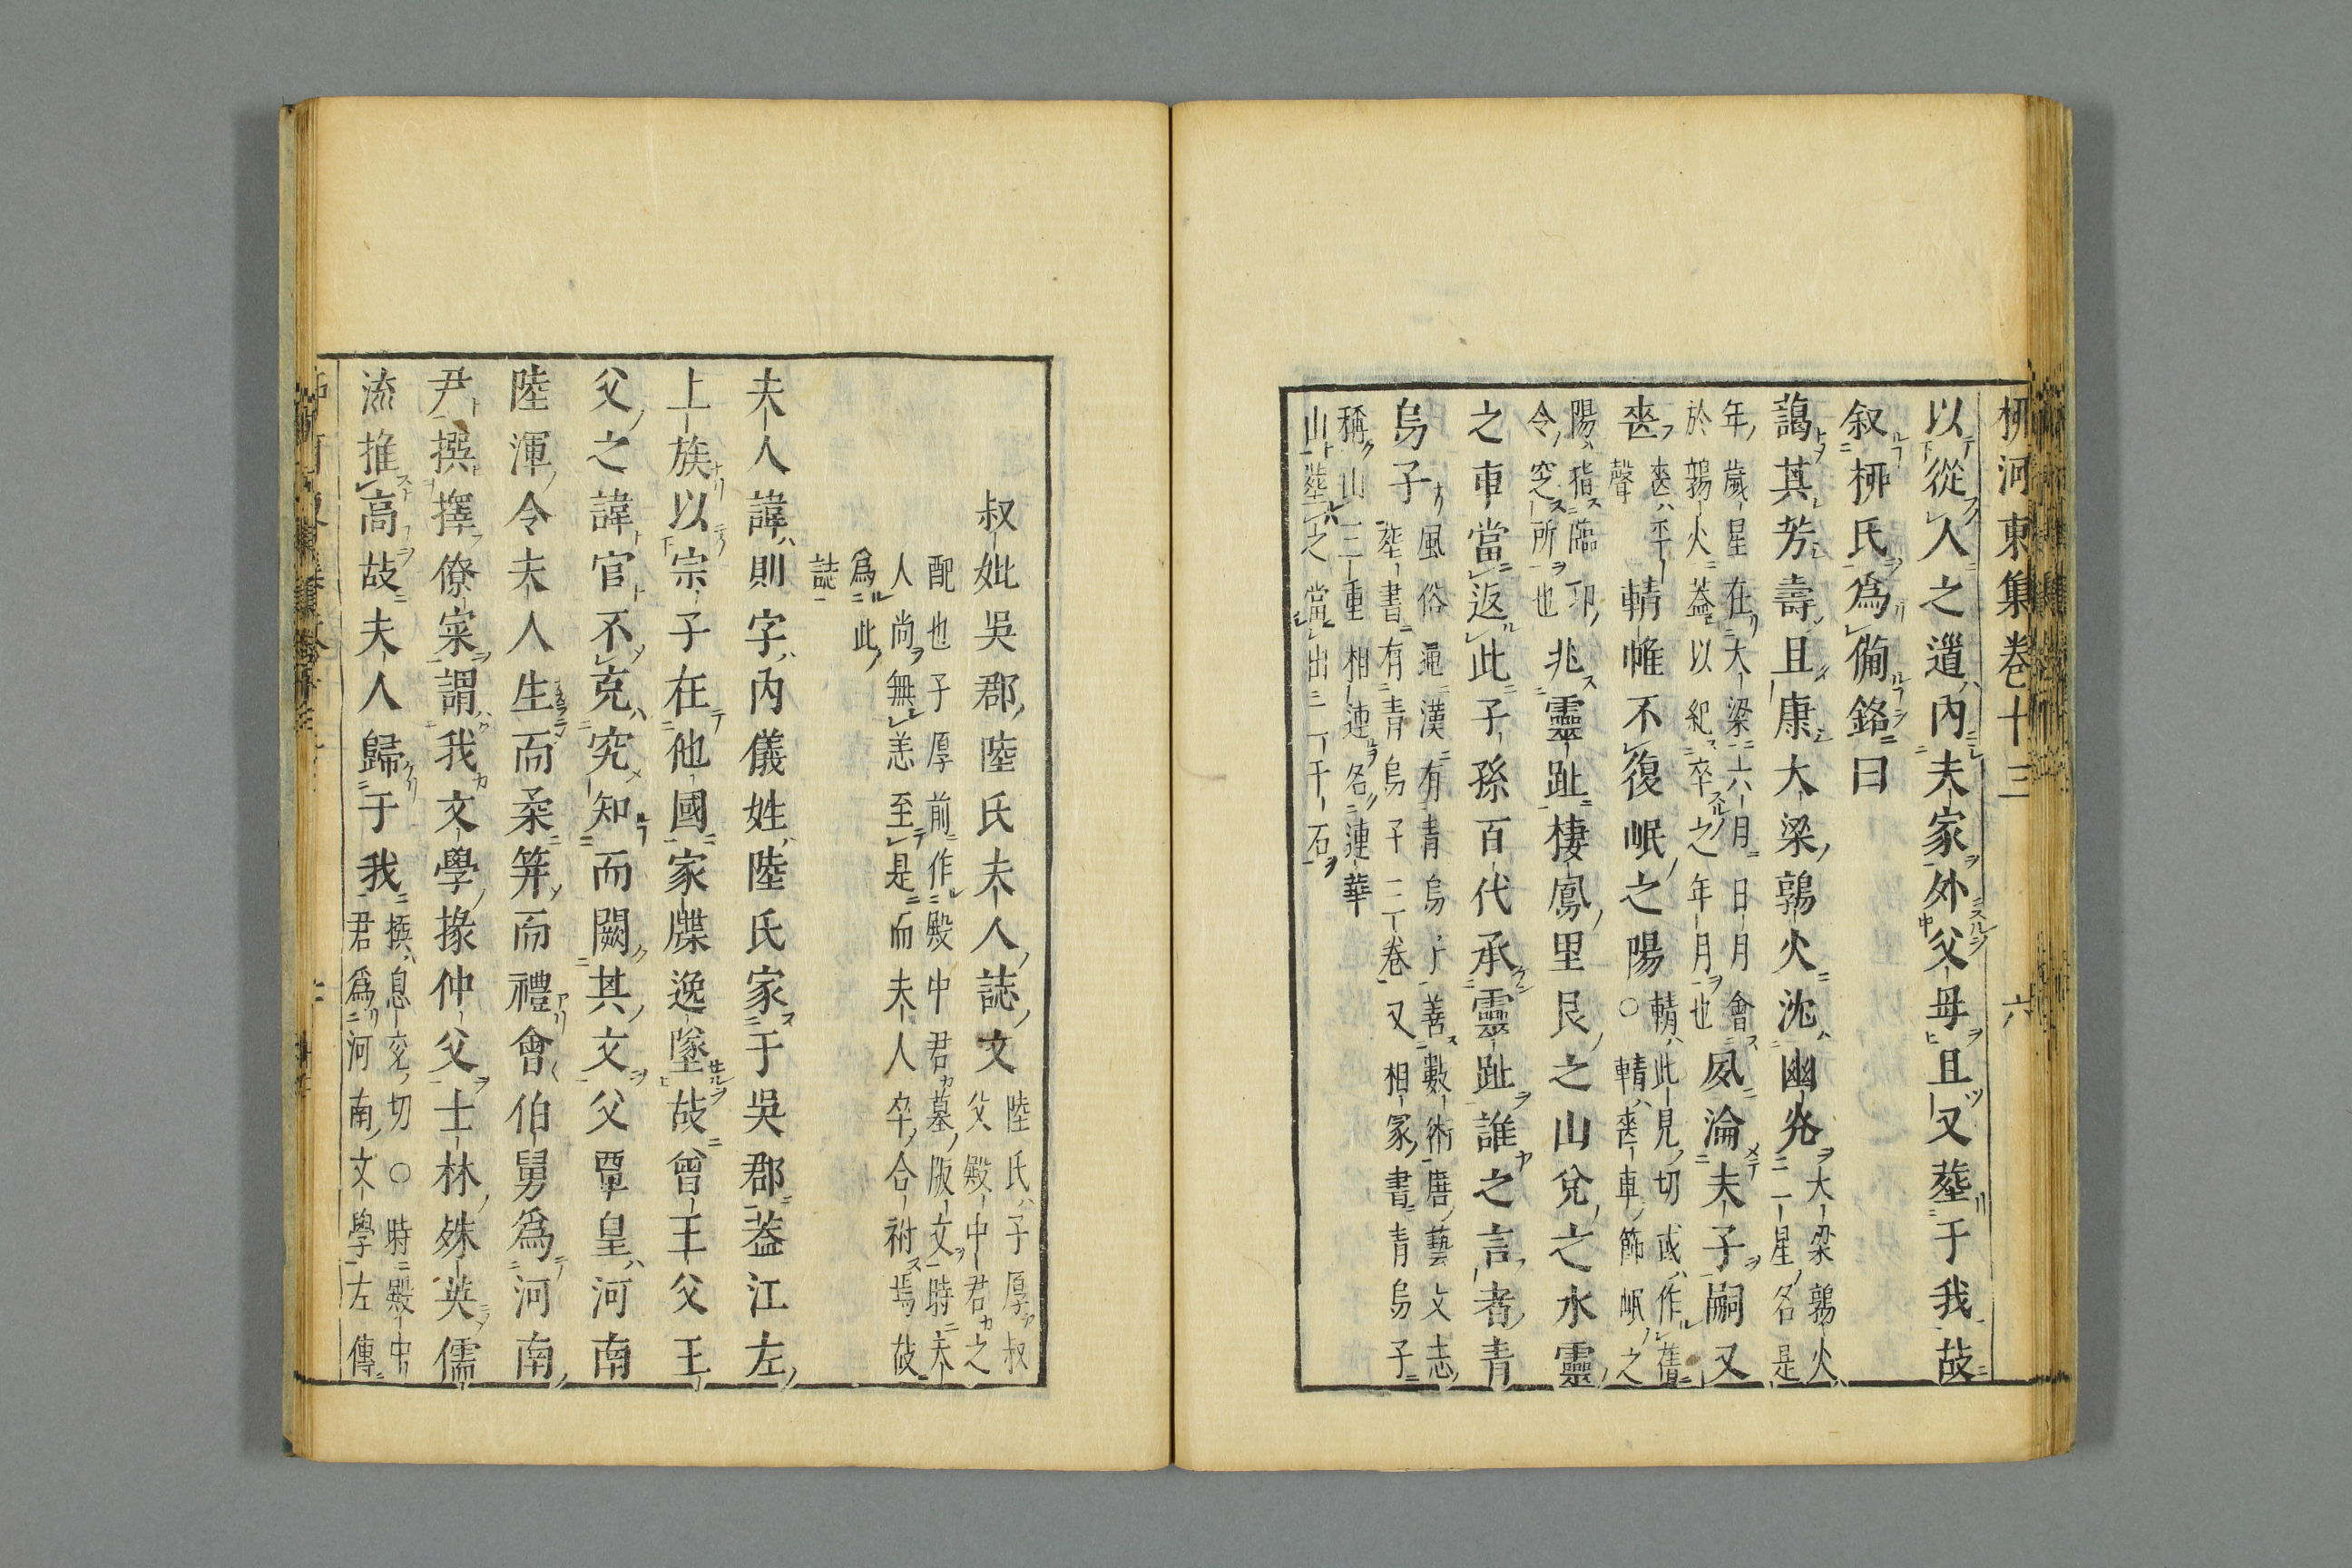 柳河東集卷十三 六
以從人之道內夫家外父母且又葬于我故
叙柳氏爲備銘曰
藹其芳壽且康大梁鶉火沈幽兆大梁鶉火二星名是
年歲星在大梁六月日月會
於鶉火蓋以紀卒之年月也夙淪夫子嗣又
喪喪平
聲輤帷不復岷之陽○輤此見切或作舊
輤喪車飾岷之
陽指臨卭
令窆所也兆靈趾棲鳳里艮之山兌之水靈
之車當返此子孫百代承靈趾誰之言者青
烏子風俗通漢有青烏子善數術唐藝文志
葬書有青烏子三卷又相冢書青烏子
稱山三重相連名連華
山葬之當出二千石
叔妣吳郡陸氏夫人誌文陸氏子厚叔
父殿中君之
配也子厚前作殿中君墓版文時夫
人尚無恙至是而夫人卒合祔焉故
爲此
誌
夫人諱則字內儀姓陸氏家于吳郡蓋江左
上族以宗子在他國家牒逸墜故曾王父王
父之諱官不克究知而闕其文父覃皇河南
陸渾令夫人生而柔筓而禮會伯舅爲河南
尹撰擇僚寀謂我文學掾仲父士林殊英儒
流推高故夫人歸于我撰息交切○時殿中
君爲河南文學左傳